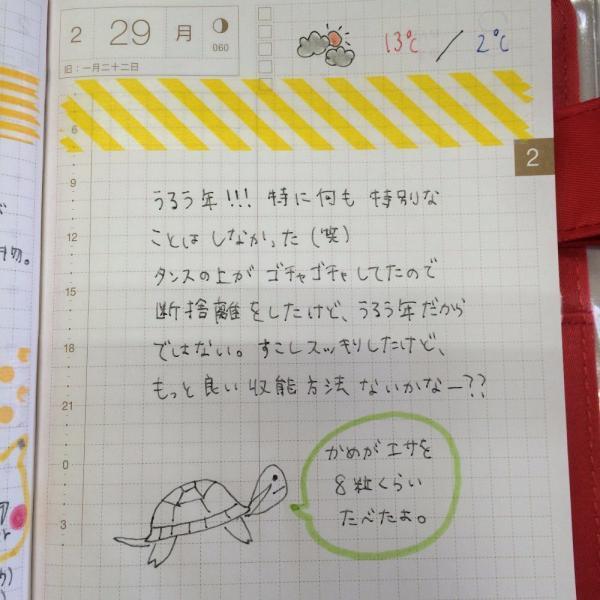 2 29 月
060
旧：一月二十二日
13℃ / 2℃
2
6
9
12
15
18
21
0
3
うるう年!!! 特に何も 特別な
ことは しなかった (笑)
タンスの上が ゴチャゴチャしてたので
断捨離をしたけど、うるう年だから
ではない。すこしスッキリしたけど、
もっと良い 収能方法 ないかなー??
かめがエサを
8粒くらい
たべたよ。